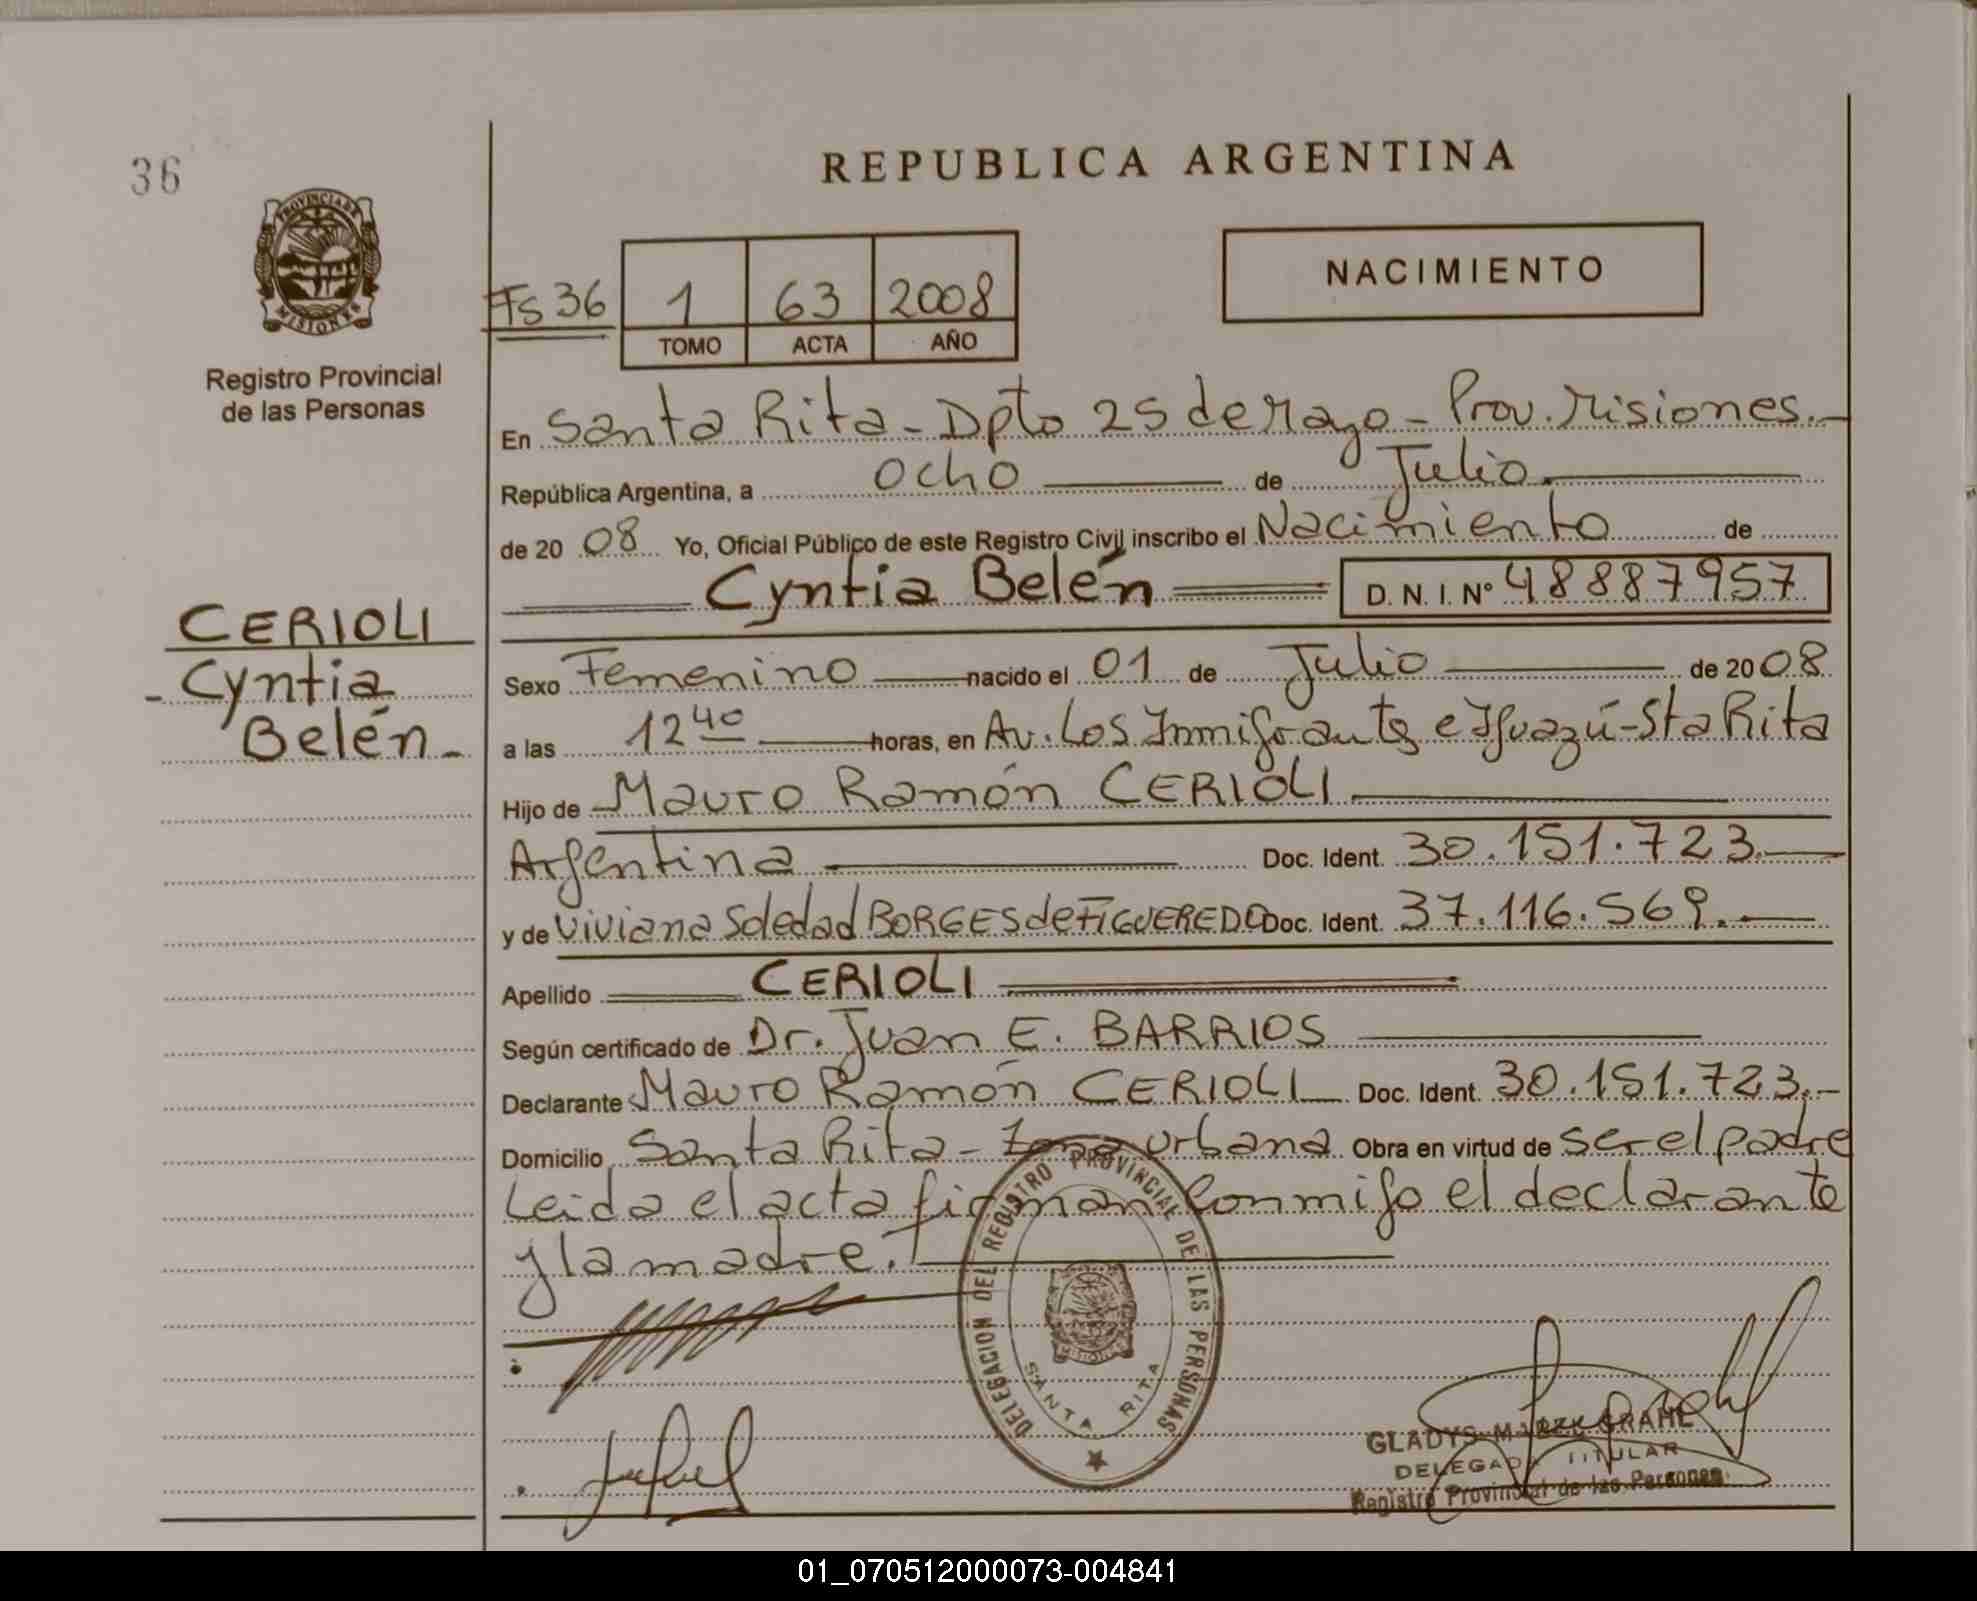 36
REPUBLICA ARGENTINA
PROVINCIA DE
MISIONES
Registro Provincial
de las Personas
Fs 36
1 63 2008
TOMO ACTA AÑO
NACIMIENTO
En Santa Rita - Dpto 25 de Mayo - Prov. Misiones.-
República Argentina, a ocho de Julio.
de 2008 Yo, Oficial Público de este Registro Civil inscribo el Nacimiento de
Cyntia Belén D.N.I. Nº 48887957
CERIOLI
- Cyntia
Belén -
Sexo Femenino nacido el 01 de Julio de 2008
a las 12 40 horas, en Av. Los Inmigrantes e Iguazú - Sta Rita
Hijo de Mauro Ramón CERIOLI
Argentina Doc. Ident. 30.151.723.
y de Viviana Soledad BORGES de FIGUEREDO Doc. Ident. 37.116.569.
Apellido CERIOLI
Según certificado de Dr. Juan E. BARRIOS
Declarante Mauro Ramón CERIOLI Doc. Ident. 30.151.723.-
Domicilio Santa Rita - Zona urbana Obra en virtud de ser el padre
Leida el acta firman conmigo el declarante
y la madre.
DELEGACION DEL REGISTRO PROVINCIAL DE LAS PERSONAS
MISIONES
SANTA RITA
GLADYS GRAHL
DELEGADA TITULAR
Registro Provincial de las Personas
01_070512000073-004841